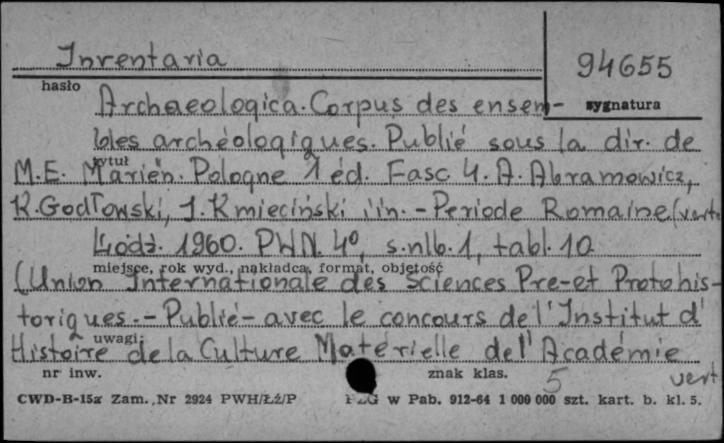 Inventaria
94655
hasło
sygnatura
Archaeologica. Corpus des ensem-
bles archéologiques. Publié sous la dir. de
tytuł
M.E. Mariën. Pologne 1 éd. Fasc 4. A. Abramowicz,
K. Godłowski, J. Kmieciński i in. - Periode Romaine (verte
Łódź. 1960. PWN. 4°, s. nlb. 1, tabl. 10
miejsce, rok wyd., nakładca, format, objętość
(Union Internationale des Sciences Pre-et Protohis-
toriques. - Publié - avec le concours de l'Institut d'
uwagi
Histoire de la Culture Matérielle de l'Académie
nr inw.
znak klas.
5
vert
CWD-B-15z Zam. Nr 2924 PWH/Łż/P
PZG w Pab. 912-64 1 000 000 szt. kart. b. kl. 5.